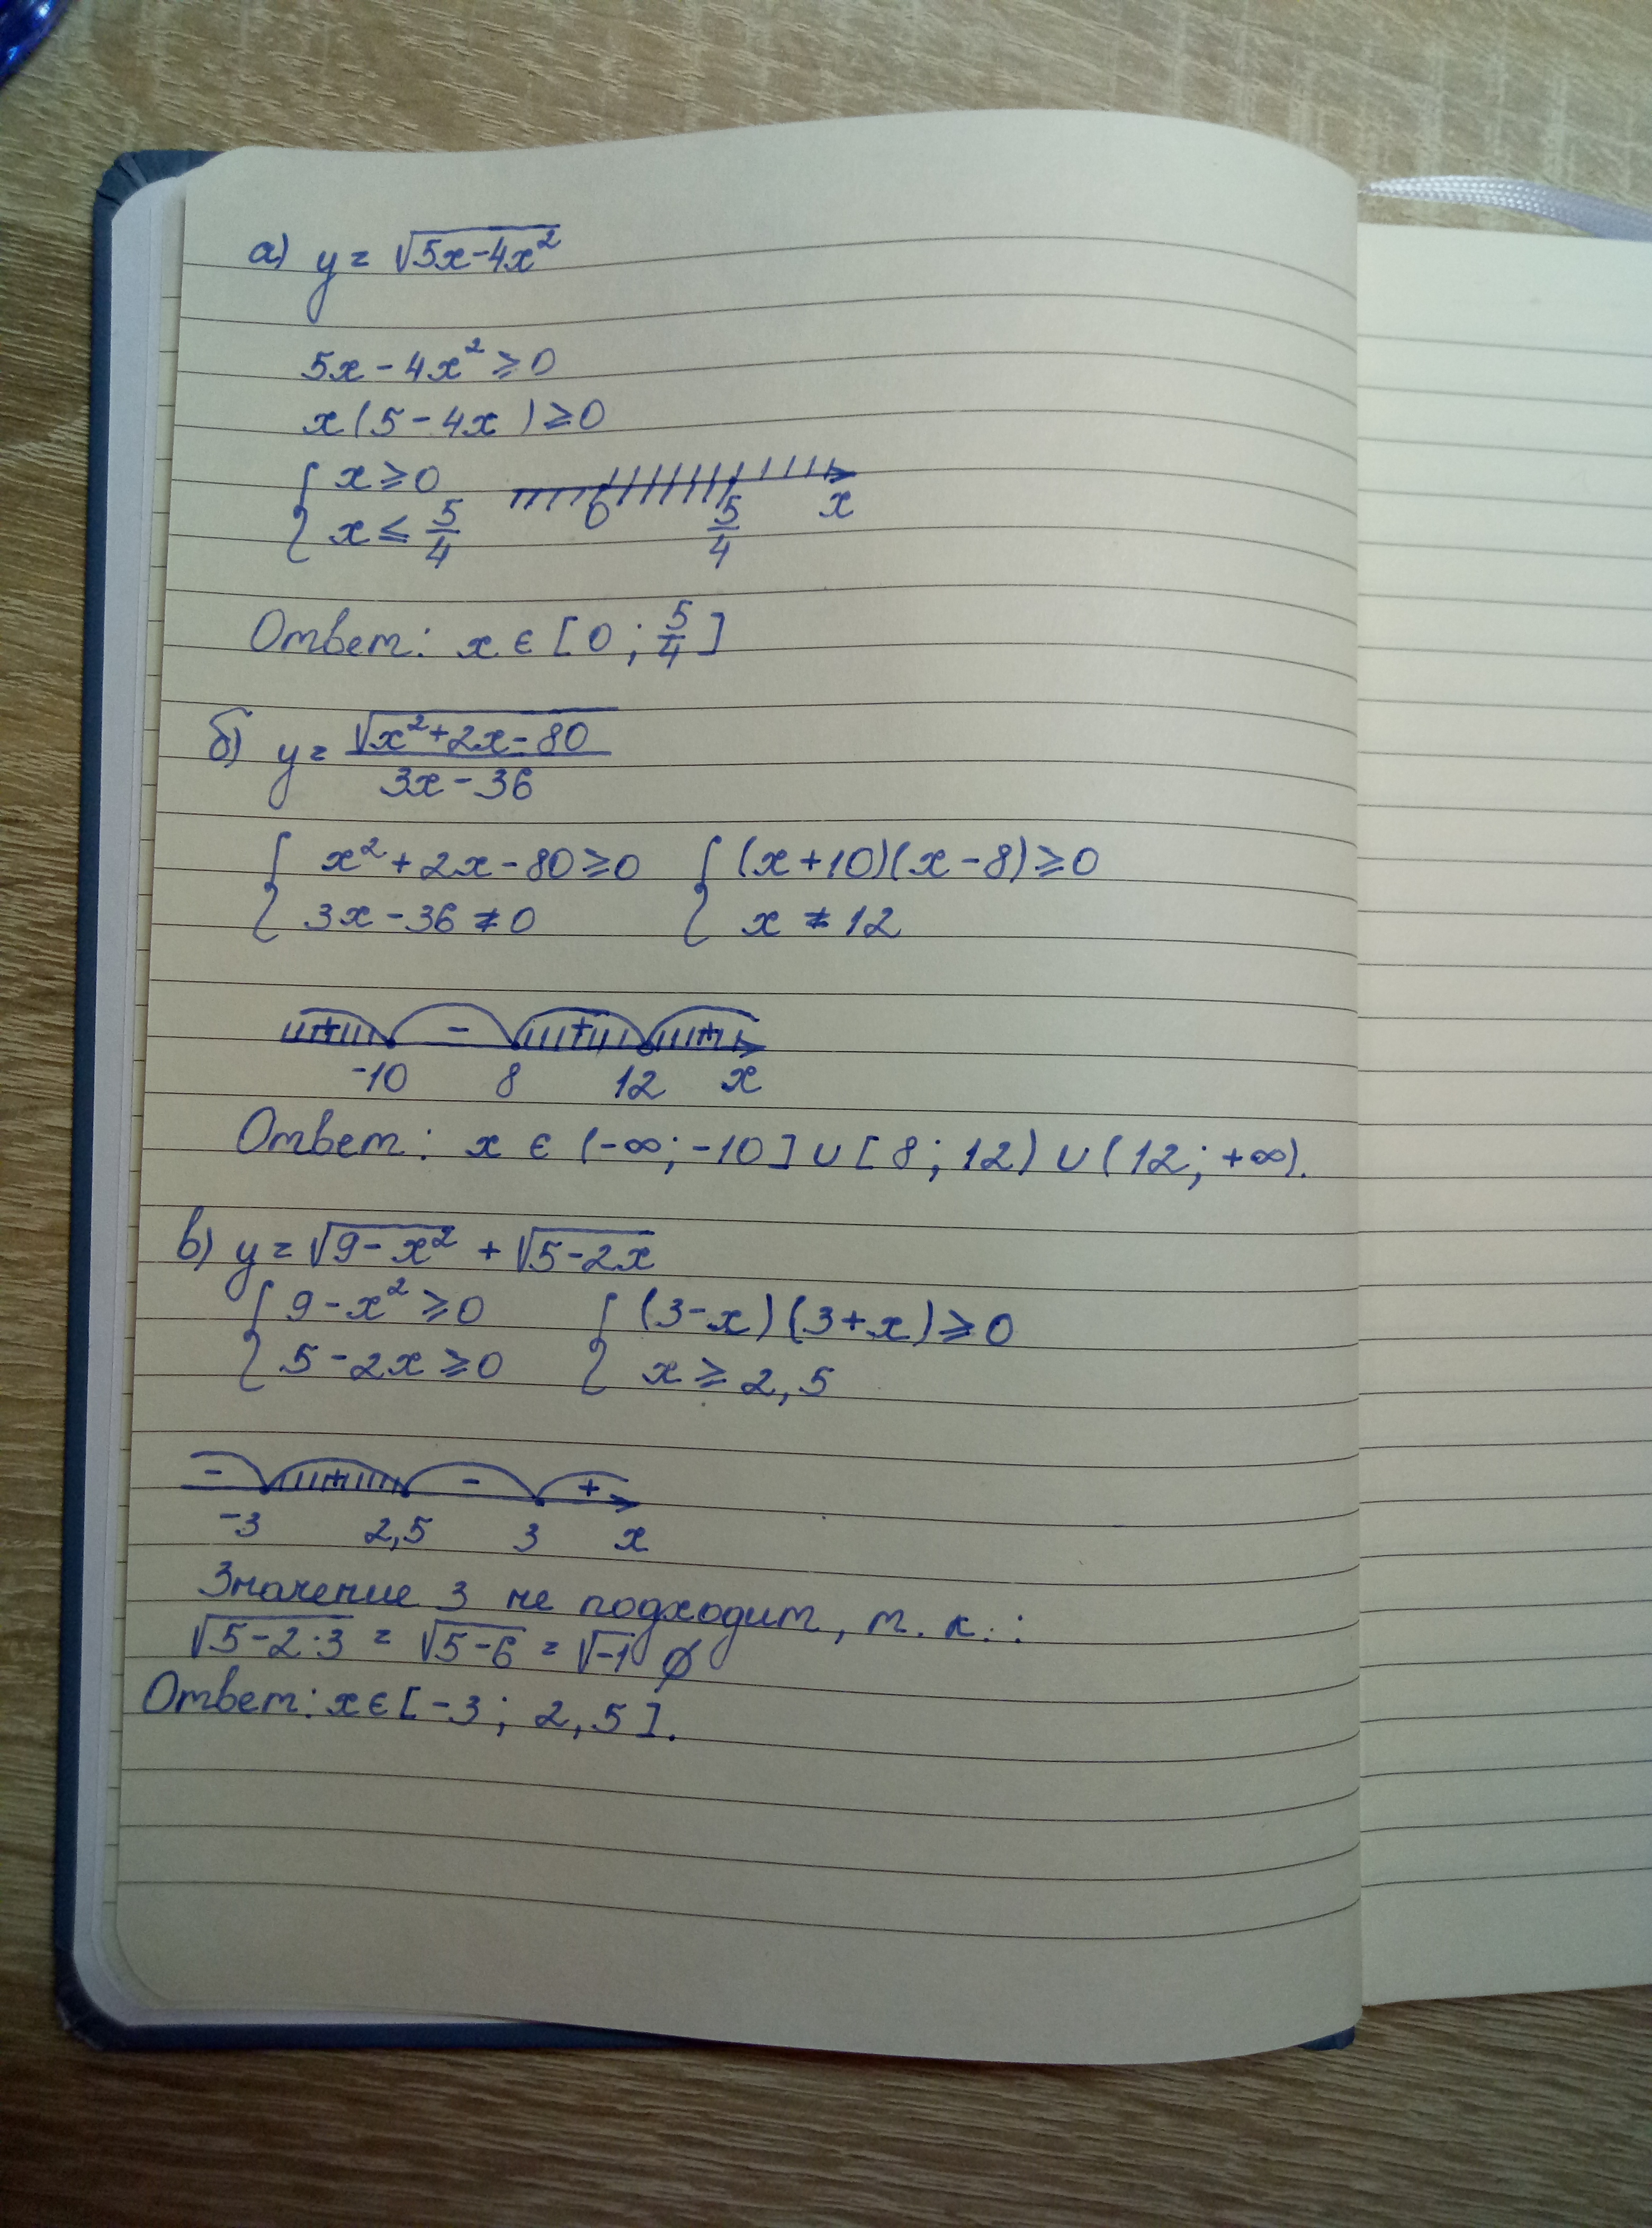 а) y = √5x-4x²
5x - 4x² ≥ 0
x(5 - 4x) ≥ 0
{ x ≥ 0
{ x ≤ 5/4
0 5/4 x
Ответ: x ∈ [0; 5/4]
б) y = √x²+2x-80 / 3x-36
{ x² + 2x - 80 ≥ 0 { (x+10)(x-8) ≥ 0
{ 3x - 36 ≠ 0 { x ≠ 12
+ - + +
-10 8 12 x
Ответ: x ∈ (-∞; -10] ∪ [8; 12) ∪ (12; +∞).
в) y = √9-x² + √5-2x
{ 9 - x² ≥ 0 { (3-x)(3+x) ≥ 0
{ 5 - 2x ≥ 0 { x ≥ 2,5
- + - +
-3 2,5 3 x
Значение 3 не подходит, т. к. :
√5-2·3 = √5-6 = √-1 ∅
Ответ: x ∈ [-3; 2,5].